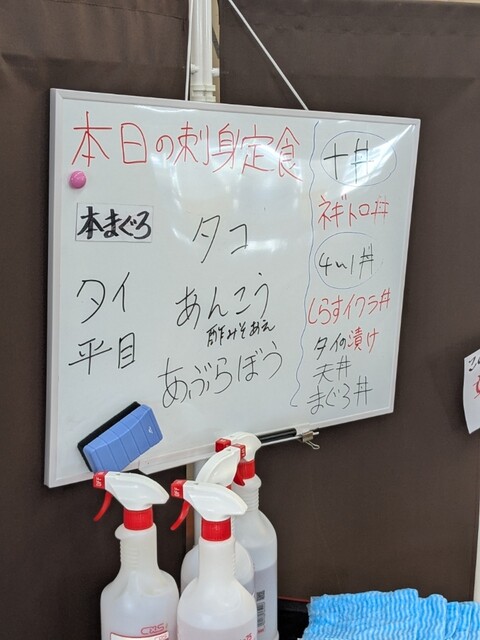 本日の刺身定食
本まぐろ
タコ
タイ
あんこう
酢みそあえ
平目
あぶらぼう
十丼
ネギトロ丼
4い1丼
しらすイクラ丼
タイの漬け
天丼
まぐろ丼